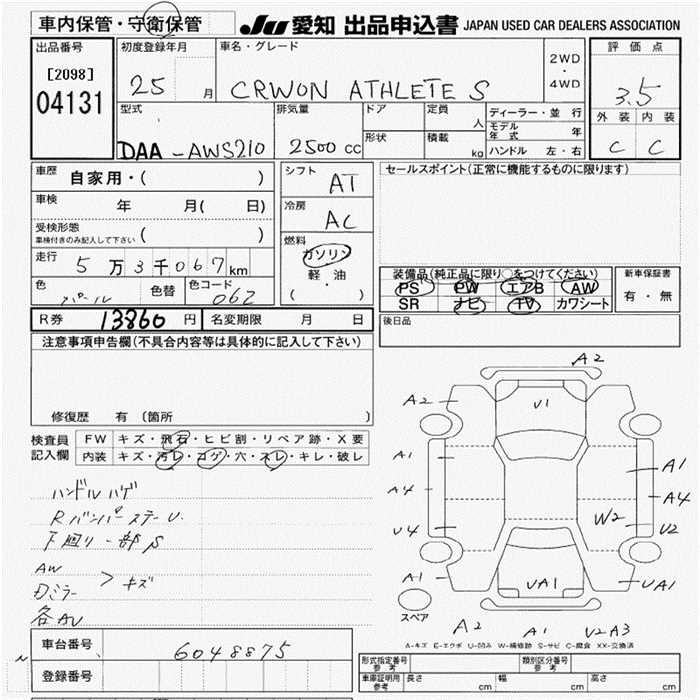 車内保管・守衛保管
JU 愛知 出品申込書 JAPAN USED CAR DEALERS ASSOCIATION
出品番号
[2098]
04131
初度登録年月
25 月
車名・グレード
CRWON ATHLETE S
2WD
・
4WD
評価点
3.5
外装 内装
C C
型式
DAA-AWS210
排気量
2500 CC
ドア
定員
人
形状
積載
kg
ディーラー・並行
モデル年式 年
ハンドル 左・右
車歴
自家用・( )
車検
年 月( 日)
受検形態
車検付きのみ記入して下さい ( )
走行
5万3千067km
色
パール
色替
色コード
062
シフト
AT
冷房
AC
燃料
ガソリン
軽・油
( ・ )
セールスポイント(正常に機能するものに限ります)
装備品(純正品に限り○をつけてください)
PS PW エアB AW
SR ナビ TV カワシート
新車保証書
有・無
R券 13860 円
名変期限 月 日
後日品
注意事項申告欄(不具合内容等は具体的に記入して下さい)
修復歴 有 〔箇所 〕
検査員記入欄
FW キズ・飛石・ヒビ割・リペア跡・X要
内装 キズ・汚レ・コゲ・穴・スレ・キレ・破レ
ハンドルハゲ
Rバンパーステー U.
下廻り一部S
AW
Dミラー > キズ
各AU
A2
A2
U1
A1
A1
A4
A4
U4
W2
U2
A1
UA1
UA1
スペア
A2
A1
U2 A3
A-キズ E-エクボ U-凹み W-補修跡 S-サビ C-腐食 XX-交換済
車台番号
6048875
登録番号
形式指定番号 参考
類別区分番号 参考
車庫証明用 参考
長さ cm
幅 cm
高さ cm